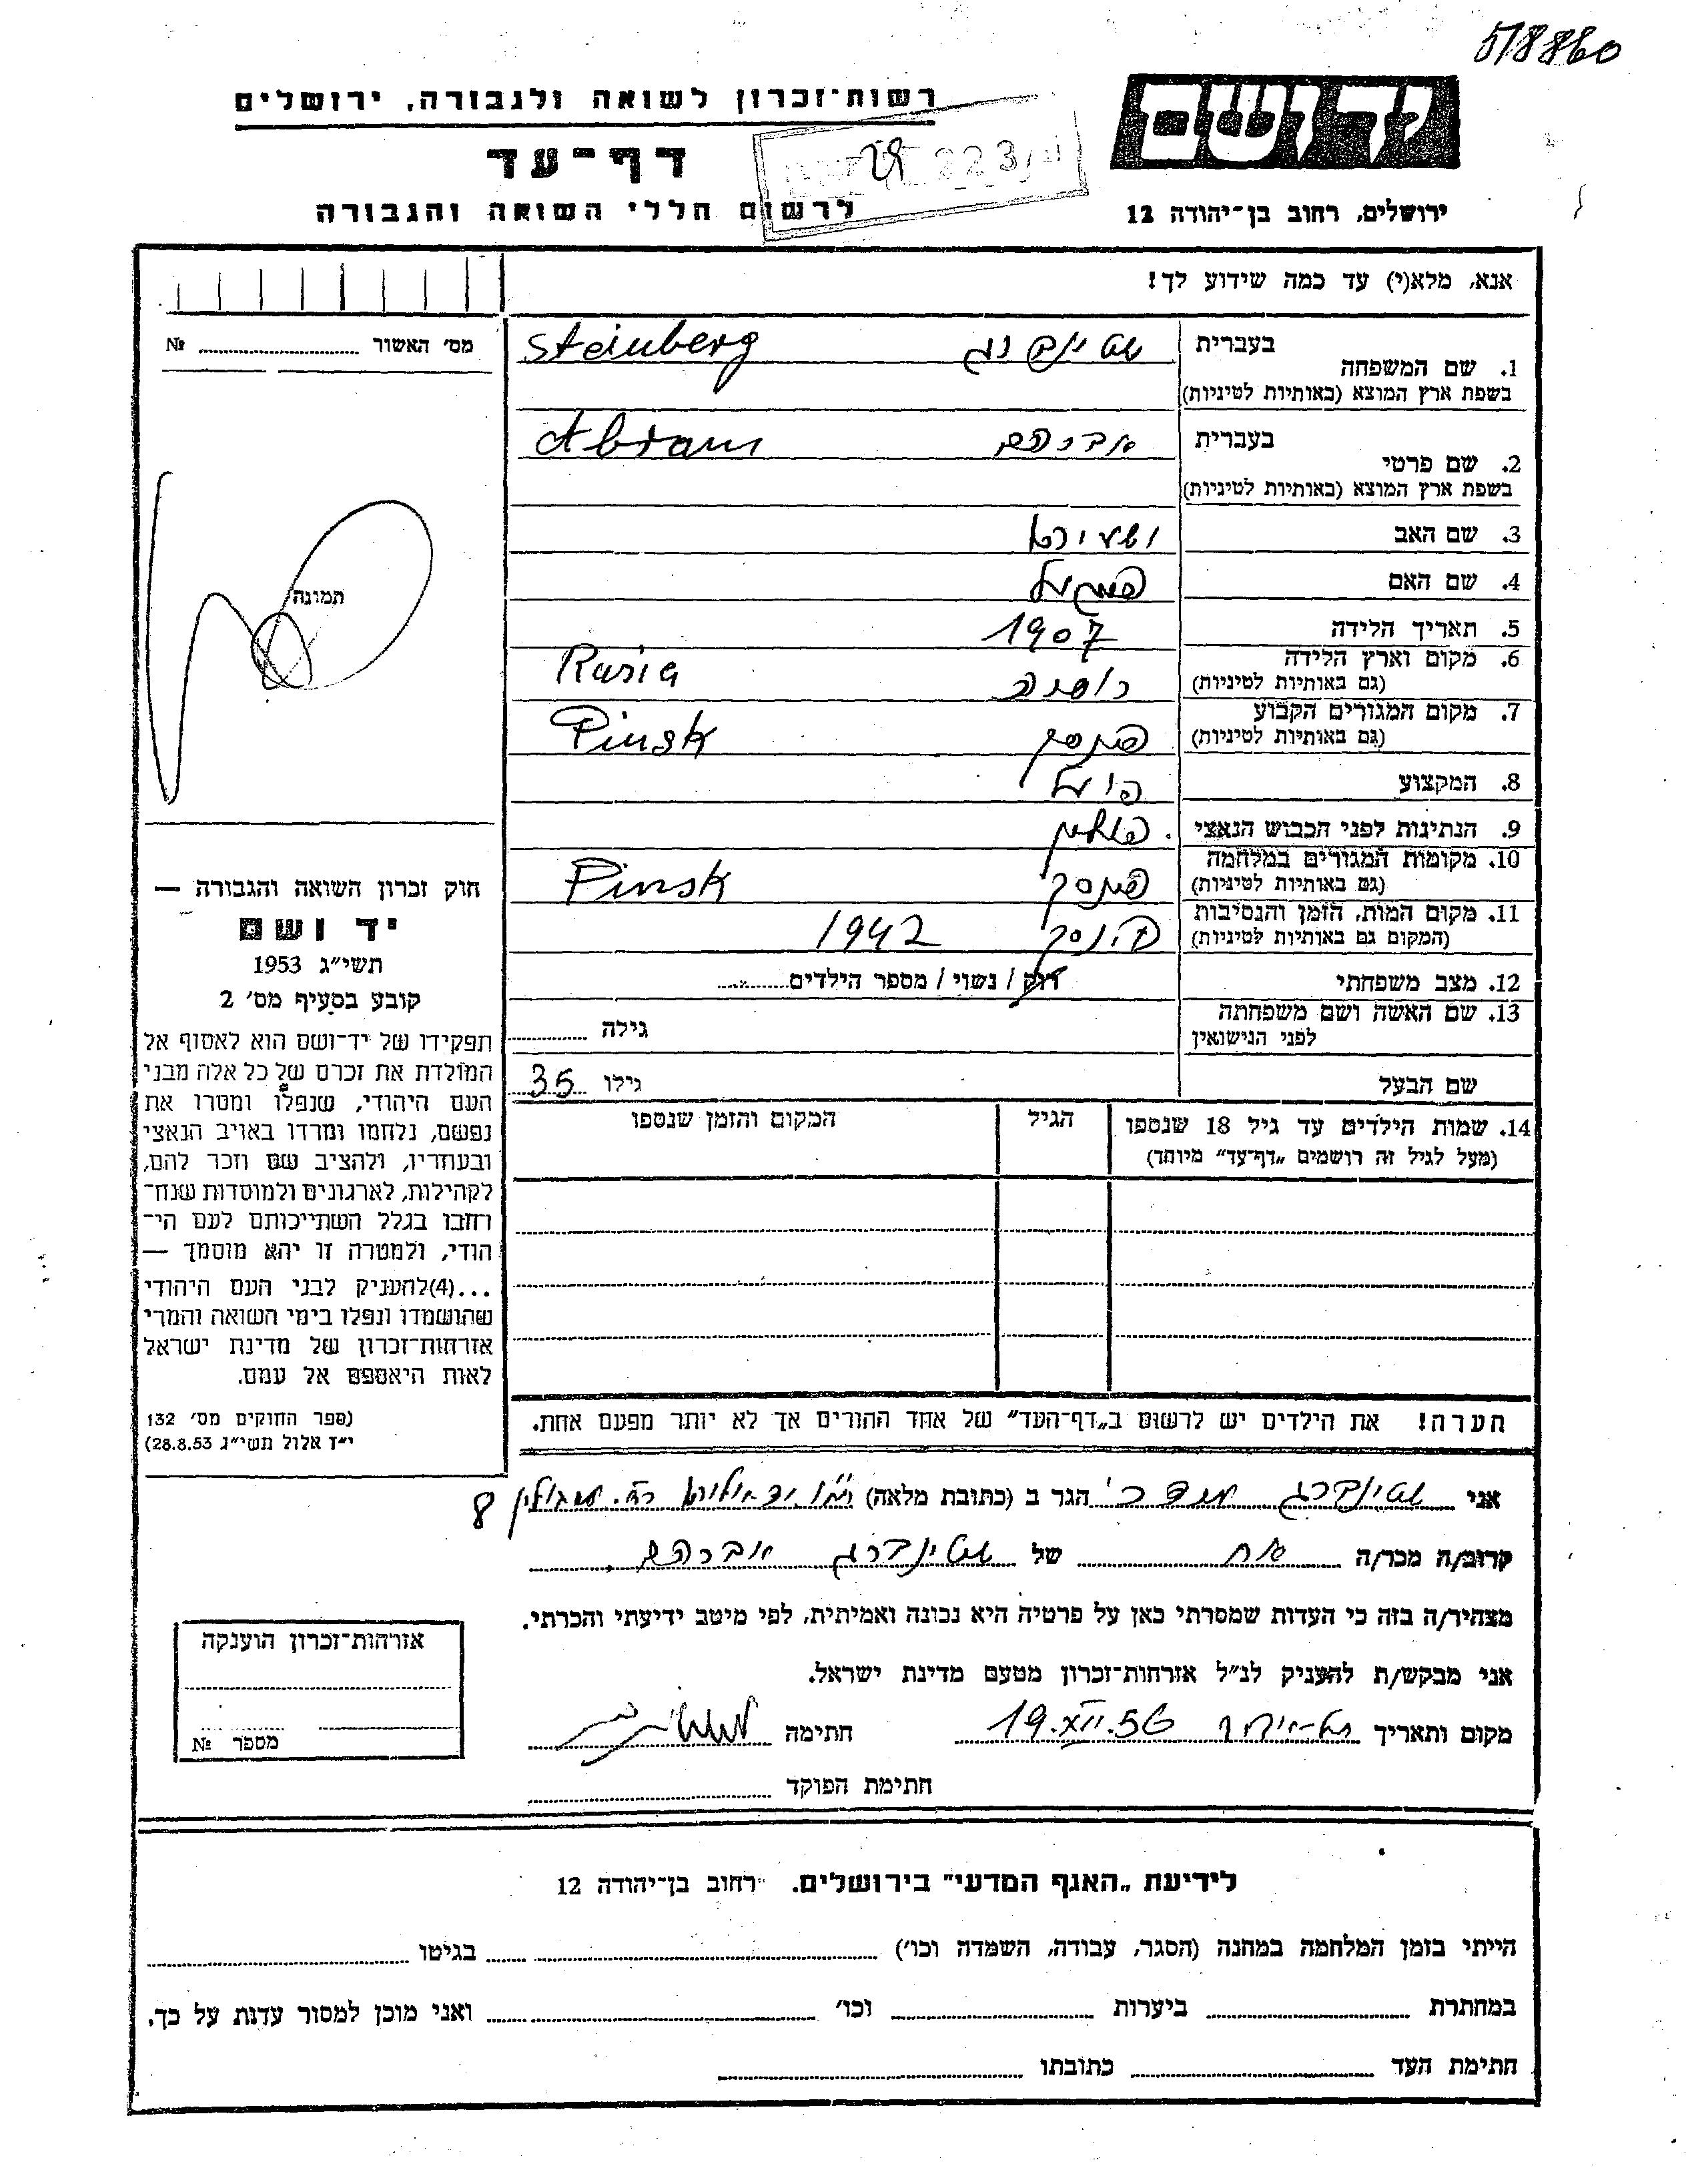 578860
יד ושם
רשות־זכרון לשואה ולגבורה, ירושלים
דף־עד
לרשום חללי השואה והגבורה
ירושלים, רחוב בן־יהודה 12
223
אנא, מלא(י) עד כמה שידוע לך!
מס׳ האשור № 
בעברית שטינברג Steinberg
1. שם המשפחה
בשפת ארץ המוצא (באותיות לטיניות)
בעברית אברהם Abram
2. שם פרטי
בשפת ארץ המוצא (באותיות לטיניות)
3. שם האב
4. שם האם
5. תאריך הלידה 1907
6. מקום וארץ הלידה
(גם באותיות לטיניות) רוסיה Rusia
7. מקום המגורים הקבוע
(גם באותיות לטיניות) פינסק Pinsk
8. המקצוע פועל
9. הנתינות לפני הכבוש הנאצי פולין
10. מקומות המגורים במלחמה
(גם באותיות לטיניות) פינסק Pinsk
11. מקום המות, הזמן והנסיבות
(המקום גם באותיות לטיניות) פינסק 1942
12. מצב משפחתי רוק / נשוי / מספר הילדים
13. שם האשה ושם משפחתה
לפני הנישואין גילה
שם הבעל גילו 35
14. שמות הילדים עד גיל 18 שנספו הגיל המקום והזמן שנספו
(מעל לגיל זה רושמים „דף־עד” מיוחד)
הערה! את הילדים יש לרשום ב„דף־העד” של אחד ההורים אך לא יותר מפעם אחת.
תמונה
חוק זכרון השואה והגבורה —
יד ושם
תשי״ג 1953
קובע בסעיף מס׳ 2
תפקידו של יד־ושם הוא לאסוף אל
המולדת את זכרם של כל אלה מבני
העם היהודי, שנפלו ומסרו את
נפשם, נלחמו ומרדו באויב הנאצי
ובעוזריו, ולהציב שם וזכר להם,
לקהילות, לארגונים ולמוסדות שנח־
רחבו בגלל השתייכותם לעם הי־
הודי, ולמטרה זו יהא מוסמך —
...(4)להעניק לבני העם היהודי
שהושמדו ונפלו בימי השואה והמרי
אזרחות־זכרון של מדינת ישראל
לאות היאספם אל עמם.
(ספר החוקים מס׳ 132
י״ז אלול תשי״ג 28.8.53)
אני שטינברג הגר ב (כתובת מלאה) 8
קרוב/ה מכר/ה אח של שטינברג אברהם.
מצהיר/ה בזה כי העדות שמסרתי כאן על פרטיה היא נכונה ואמיתית, לפי מיטב ידיעתי והכרתי.
אני מבקש/ת להעניק לנ״ל אזרחות־זכרון מטעם מדינת ישראל.
מקום ותאריך 19.XII.56 חתימה
חתימת הפוקד
אזרחות־זכרון הוענקה
מספר №
לידיעת „האגף המדעי” בירושלים. רחוב בן־יהודה 12
הייתי בזמן המלחמה במחנה (הסגר, עבודה, השמדה וכו׳) בגיטו
במחתרת ביערות וכו׳ ואני מוכן למסור עדות על כך.
חתימת העד כתובתו